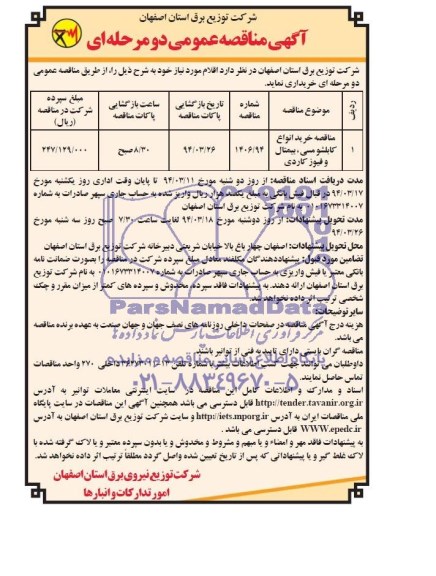 شرکت توزیع برق استان اصفهان
آگهی مناقصه عمومی دو مرحله ای
شرکت توزیع برق استان اصفهان در نظر دارد اقلام مورد نیاز خود به شرح ذیل را، از طریق مناقصه عمومی
دو مرحله ای خریداری نماید.
ردیف موضوع مناقصه شماره مناقصه تاریخ بازگشایی پاکات مناقصه ساعت بازگشایی پاکات مناقصه مبلغ سپرده شرکت در مناقصه (ریال)
۱ مناقصه خرید انواع کابلشو مسی، بیمتال و فیوز کاردی ۱۴۰۶/۹۴ ۹۴/۰۳/۲۶ ۸/۳۰ صبح ۲۴۷/۱۲۹/۰۰۰
مدت دریافت اسناد مناقصه: از روز دو شنبه مورخ ۹۴/۰۳/۱۱ تا پایان وقت اداری روز یکشنبه مورخ
۹۴/۰۳/۱۷ در قبال فیش بانکی به مبلغ یکصد هزار ریال واریز شده به حساب جاری سپهر صادرات به شماره
۰۱۰۱۶۷۳۳۱۴۰۰۷ به نام شرکت توزیع برق استان اصفهان
مدت تحویل پیشنهادات: از روز دوشنبه مورخ ۹۴/۰۳/۱۸ لغایت ساعت ۷/۳۰ صبح روز سه شنبه مورخ
۹۴/۰۳/۲۶
محل تحویل پیشنهادات: اصفهان چهار باغ بالا خیابان شریعتی دبیرخانه شرکت توزیع برق استان اصفهان
تضامین مورد قبول: پیشنهاددهندگان مکلفند معادل مبلغ سپرده شرکت در مناقصه را بصورت ضمانت نامه
بانکی معتبر یا فیش واریزی به حساب جاری سپهر صادرات به شماره ۰۱۰۱۶۷۳۳۱۴۰۰۷ به نام شرکت توزیع
برق استان اصفهان ارائه دهند. به پیشنهادات فاقد سپرده، مخدوش و سپرده های کمتر از میزان مقرر و چک
شخصی ترتیب اثر داده نخواهد شد.
سایر توضیحات:
هزینه درج آگهی مناقصه در صفحات داخلی روزنامه های نصف جهان و جهان صنعت به عهده برنده مناقصه
می باشد.
مناقصه گران بایستی دارای تایید به فنی از توانیر باشند.
داوطلبان می توانند جهت کسب اطلاعات بیشتر با شماره تلفن داخلی ۲۷۰ واحد مناقصات
تماس حاصل نمایند.
اسناد و مدارک و اطلاعات کامل این مناقصه در سایت اینترنتی معاملات توانیر به آدرس
http://tender.tavanir.org.ir قابل دسترسی می باشد همچنین آگهی این مناقصات در سایت پایگاه
ملی مناقصات ایران به آدرس http://iets.mporg.ir و سایت شرکت توزیع برق استان اصفهان به آدرس
WWW.epedc.ir قابل دسترسی می باشد.
به پیشنهادات فاقد مهر و امضاء و یا مبهم و مشروط و مخدوش و یا بدون سپرده معتبر و یا لاک گرفته شده یا
لاک غلط گیر و یا پیشنهاداتی که پس از تاریخ تعیین شده واصل گردد مطلقاً ترتیب اثر داده نخواهد شد.
شرکت توزیع نیروی برق استان اصفهان
امور تدارکات و انبارها
ParsNamadData
۰۲۱-۸۸۳۴۹۶۷۰-۵